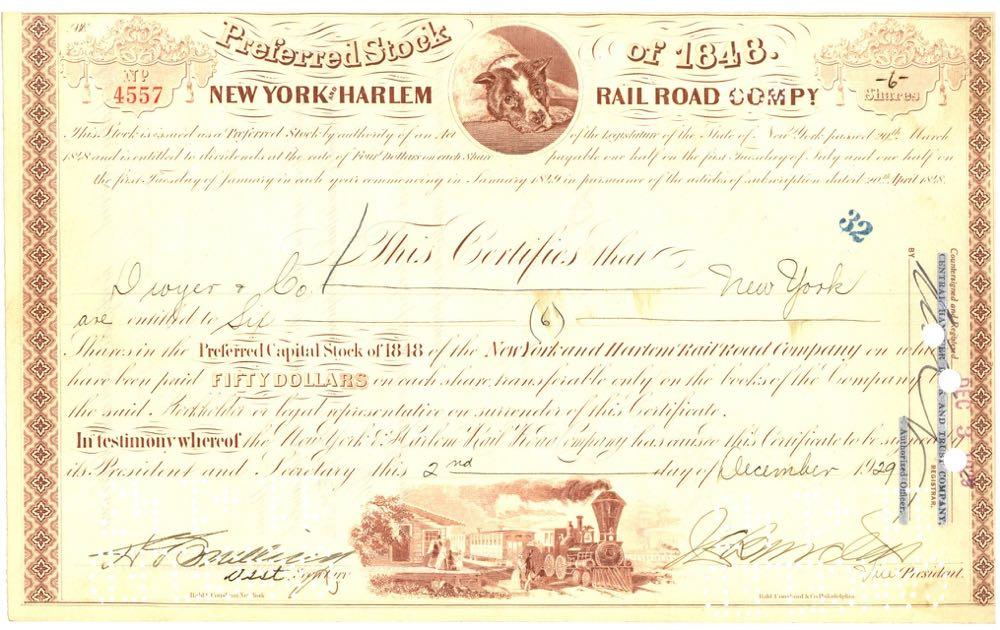 Preferred Stock of 1848.
Nº 4557
NEW YORK AND HARLEM RAIL ROAD COMPY
-6- Shares
This Stock is issued as a Preferred Stock by authority of an Act of the Legislature of the State of New York passed 29th March
1848 and is entitled to dividends at the rate of Four Dollars on each Share payable one half on the first Tuesday of July and one half on
the first Tuesday of January in each year commencing in January 1849 in pursuance of the articles of subscription dated 20th April 1848.
32
This Certifies that
Dwyer & Co. New York
are entitled to Six (6)
Shares in the Preferred Capital Stock of 1848 of the New York and Harlem Rail Road Company on
have been paid FIFTY DOLLARS on each share, transferable only on the books of the Company
the said Stockholder or legal representative on surrender of this Certificate.
In testimony whereof the New York & Harlem Rail Road Company has caused this Certificate to be
its President and Secretary this 2nd day of December 1929
Countersigned and Registered
CENTRAL AND TRUST COMPANY,
REGISTRAR.
BY
Authorized Officer.
DEC 3
Asst. Secretary
Vice President.